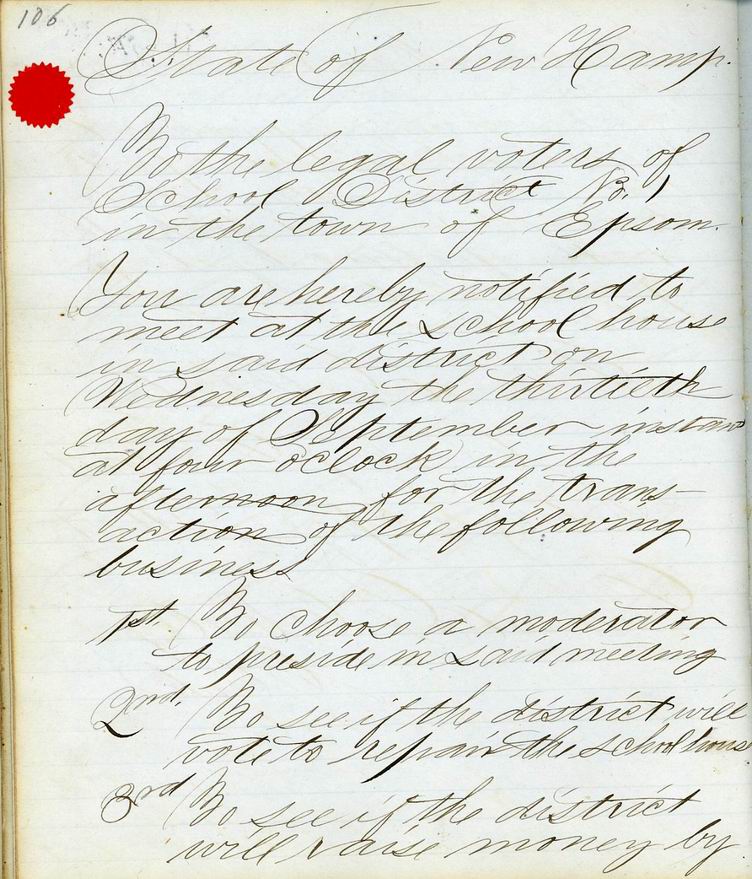 106
State of New Hamp.
To the legal voters of
School District No. 1
in the town of Epsom.
You are hereby notified to
meet at the school house
in said district on
Wednesday the thirtieth
day of September instant
at four o'clock in the
afternoon for the trans-
action of the following
business
1st. To choose a moderator
to preside in said meeting
2nd. To see if the district will
vote to repair the school hous
3rd To see if the district
will raise money by